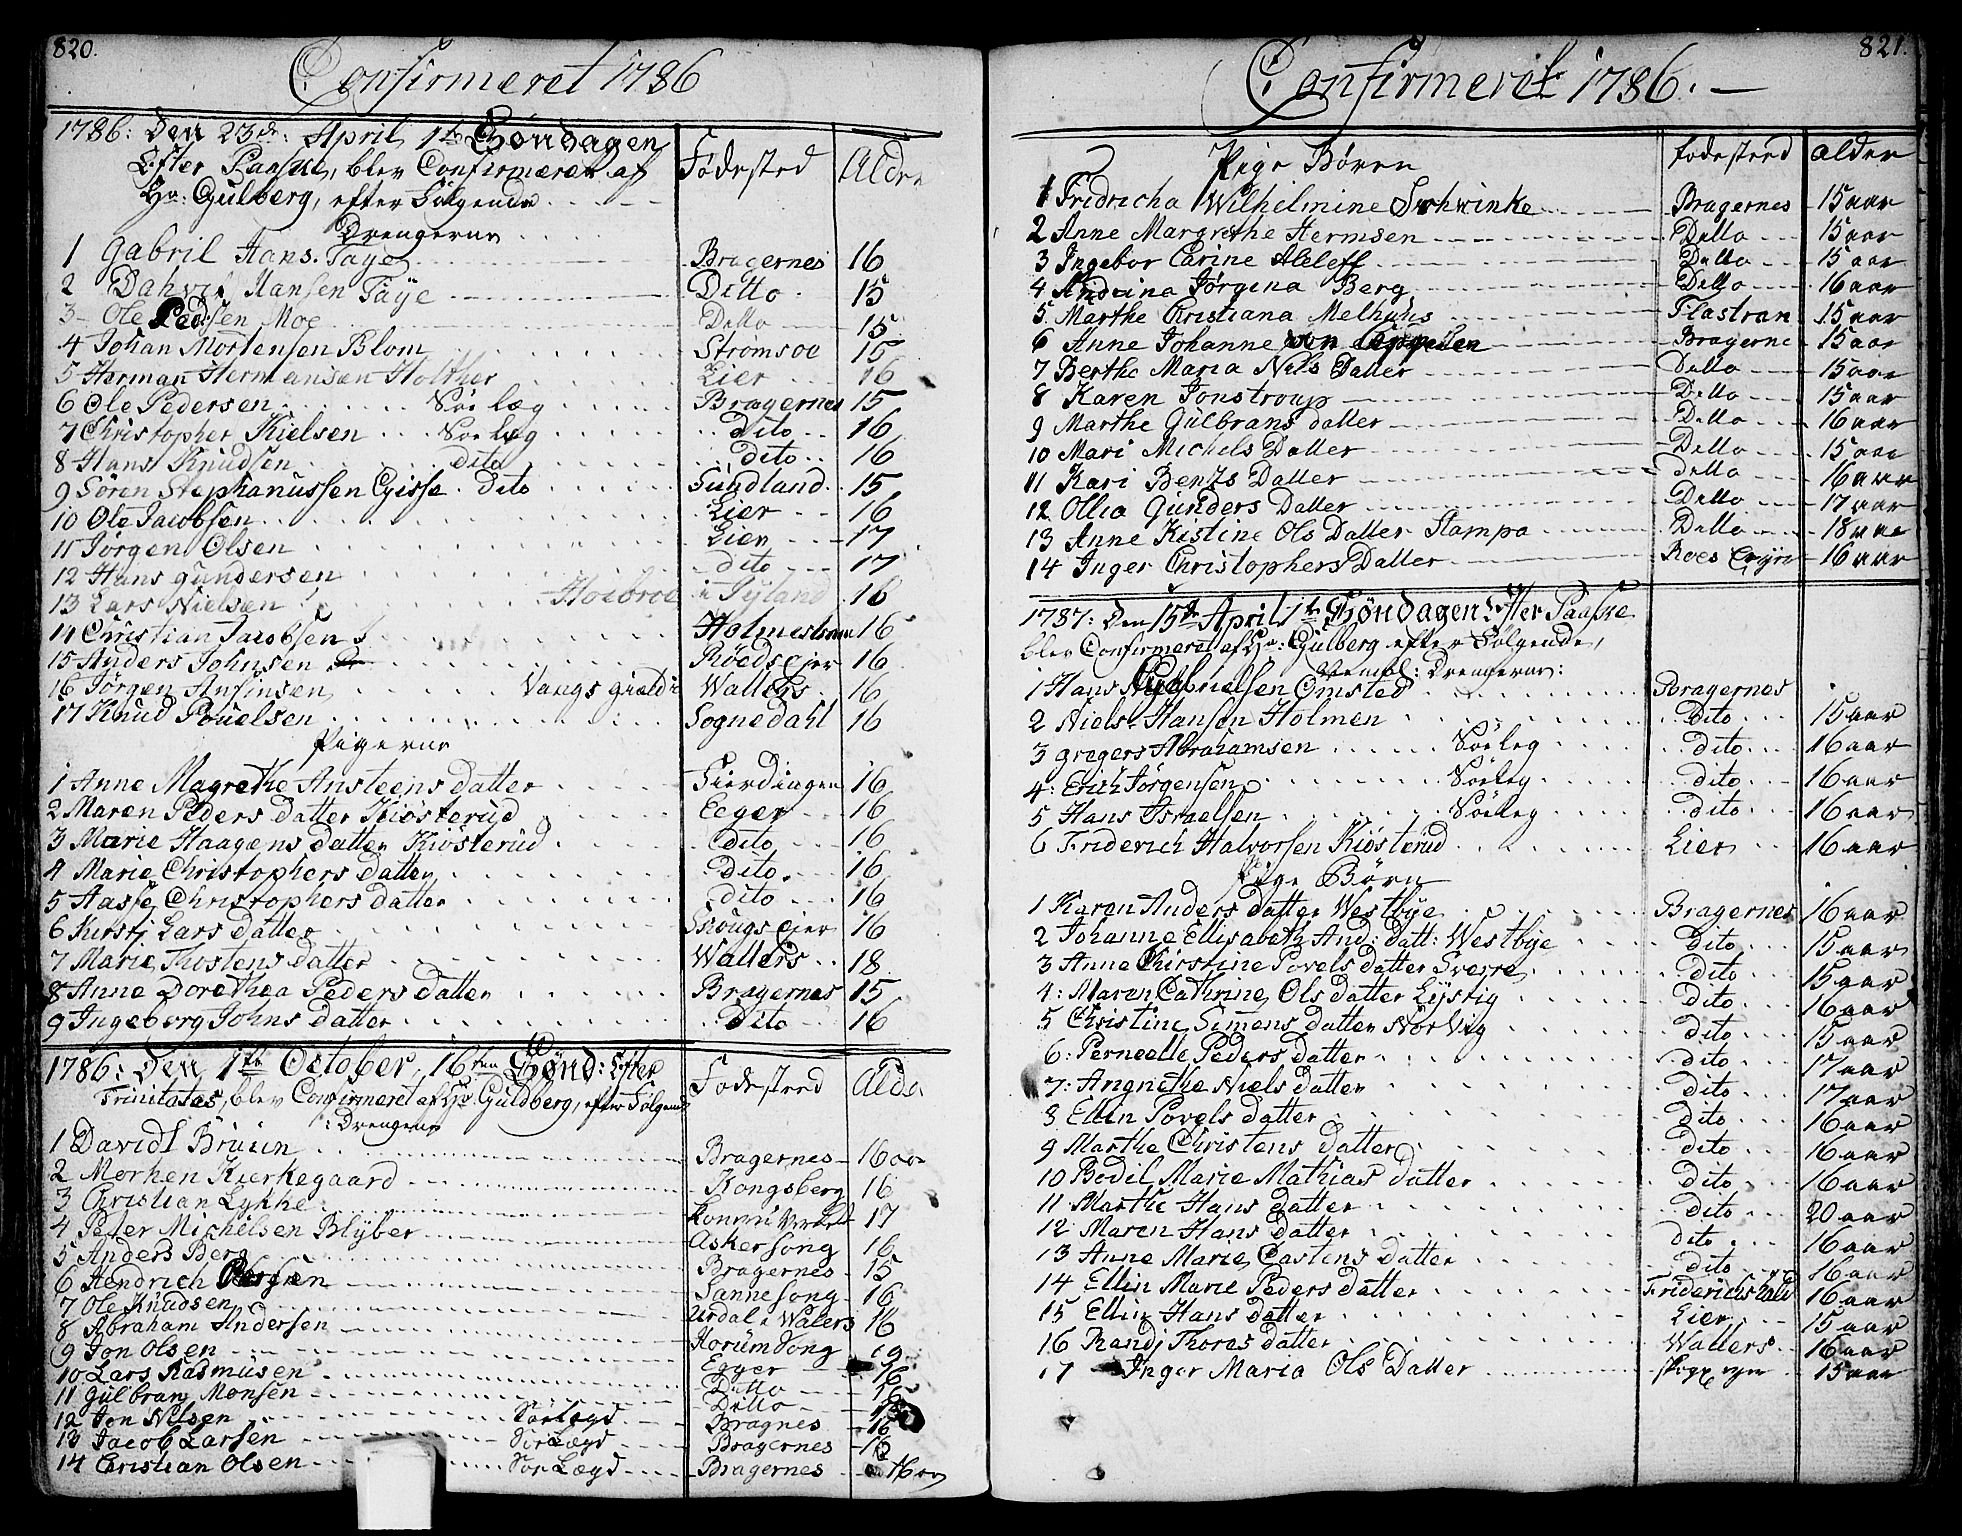 820.
Confirmeret 1786
1786: Den 23de: April, 1te Söndagen
Efter Paaske, blev Confirmeret af
Hr: Gulberg, efter Fölgende
Fødested
Alder
Drengerne
1 Gabril Hans. Faÿe Bragernes 16
2 Dahvit Hansen Faÿe Ditto 15
3 Ole Pedersen Moe Ditto 15
4 Johan Mortensen Blom Strømsoe 15
5 Herman Hermansen Holther Lier 16
6 Ole Pedersen Söe læg Bragernes 15
7 Christopher Kielsen Söe læg Dito 16
8 Hans Knudsen dito dito 16
9 Sören Stephanussen Gisse dito Sundland 15
10 Ole Jacobsen Lier 16
11 Jörgen Olsen Lier 17
12 Hans Gundersen dito 17
13 Lars Nielsen Hoebroe i Jyland 16
14 Christian Jacobsen Holmestrand 16
15 Anders Johnsen Röeds ejer 16
16 Jörgen Ansinsen Vangs gield i Wallers 16
17 Knud Pouelsen Sognedahl 16
Pigerne
1 Anne Magrethe Ansteens datter Fierdingen 16
2 Maren Peders datter Kiösterud Eeger 16
3 Marie Haagens datter Kiösterud dito 16
4 Marie Christophers datter Dito 16
5 Aasse Christophers datter dito 16
6 Kirsti Lars datter Skougs ejer 16
7 Marie Tostens datter Wallers 18
8 Anne Dorethea Peders datter Bragernes 15
9 Ingeborg Johns datter Dito 16
1786: Den 1te October, 16ten Sönd: Efter
Trinitates, blev Confirmeret af Hr: Guldberg, efter Fölgend
Fodested
Alder
: Drengene
1 David Bruun Bragernes 16 aar
2 Morhen Kierkegaard Kongsberg 16
3 Christian Lykke 17
4 Peder Michelsen Blÿber Asker Song 16
5 Anders Berg Bragernes 15
6 Hendrich Sanne Song 16
7 Ole Knudsen Urdal i Walers 16
8 Abraham Andersen Horüm Song 19
9 Jon Olsen Egger 16
10 Lars Rasmusen Ditto 16
11 Gulbran Monsen Ditto
12 Jon Nilsen Sörlegd Bragnes 16
13 Jacob Larsen Sörlægd Bragernes 16
14 Christian Olsen Sör Lægd Bragernes 16 aar
821.
Confirmeret 1786.
Pige Børen
fodesteed
alder
1 Fridricha Wilhelmine Schwinke Bragernes 15 aar
2 Anne Margrethe Hermsen Ditto 15 aar
3 Ingebor Carine Aleleff Ditto 15 aar
4 Andrina Jørgina Berg Ditto 16 aar
5 Marthe Christiana Melhuus Flastran 15 aar
6 Anne Johanne von Cappelen Bragerne 15 aar
7 Berthe Maria Nils Datter Ditto 15 aar
8 Karen Jonstroup Ditto 15 aar
9 Marthe Gulbrans datter Ditto 16 aar
10 Mari Michels Datter Ditto 15 aar
11 Kari Bents Datter Ditto 16 aar
12 Ollea Gunders Datter Ditto 17 aar
13 Anne Kistine Ols Datter Stampa Ditto 18 aar
14 Inger Christophers Datter Roes 16 aar
1787: Den 15de April, 1te Söndagen Efter Paaske
blev Confirmeret af Hr: Gulberg efter Fölgende,
Nembl: Drengerne:
1 Hans Gabrielsen Omsted Bragernes
2 Niels Hansen Holmen Dito 15 aar
3 Gregers Abrahamsen Söeleg dito 16 aar
4: Erich Jörgensen Söeleg dito 16 aar
5 Hans Israelsen Söeleg dito 16 aar
6 Friderich Halvorsen Kiösterud Lier 16 aar
Pige Börn
1 Karen Anders datter Westbÿe Bragernes 16 aar
2 Johanne Ellisabeth And: datt: Westbÿe Dito 15 aar
3 Anne Chirstine Povels datter Sverre dito 15 aar
4: Maren Cathrine Ols datter Lÿstig dito 16 aar
5 Christine Simens datter Norvig dito 15 aar
6: Perneelle Peders datter dito 17 aar
7: Angnethe Niels datter dito 17 aar
8 Ellin Povels datter dito 16 aar
9 Marthe Christens datter dito 16 aar
10 Bodil Marie Mathias datter dito 16 aar
11 Marthe Hans datter dito 20 aar
12 Maren Hans datter dito 16 aar
13 Anne Marie Castens datter dito 16 aar
14 Ellin Marie Peders datter Friderichshald 16 aar
15 Ellin Hans datter Lier 15 aar
16 Randi Thores datter Wallers 16 aar
17 Inger Maria Ols Datter 15 aar